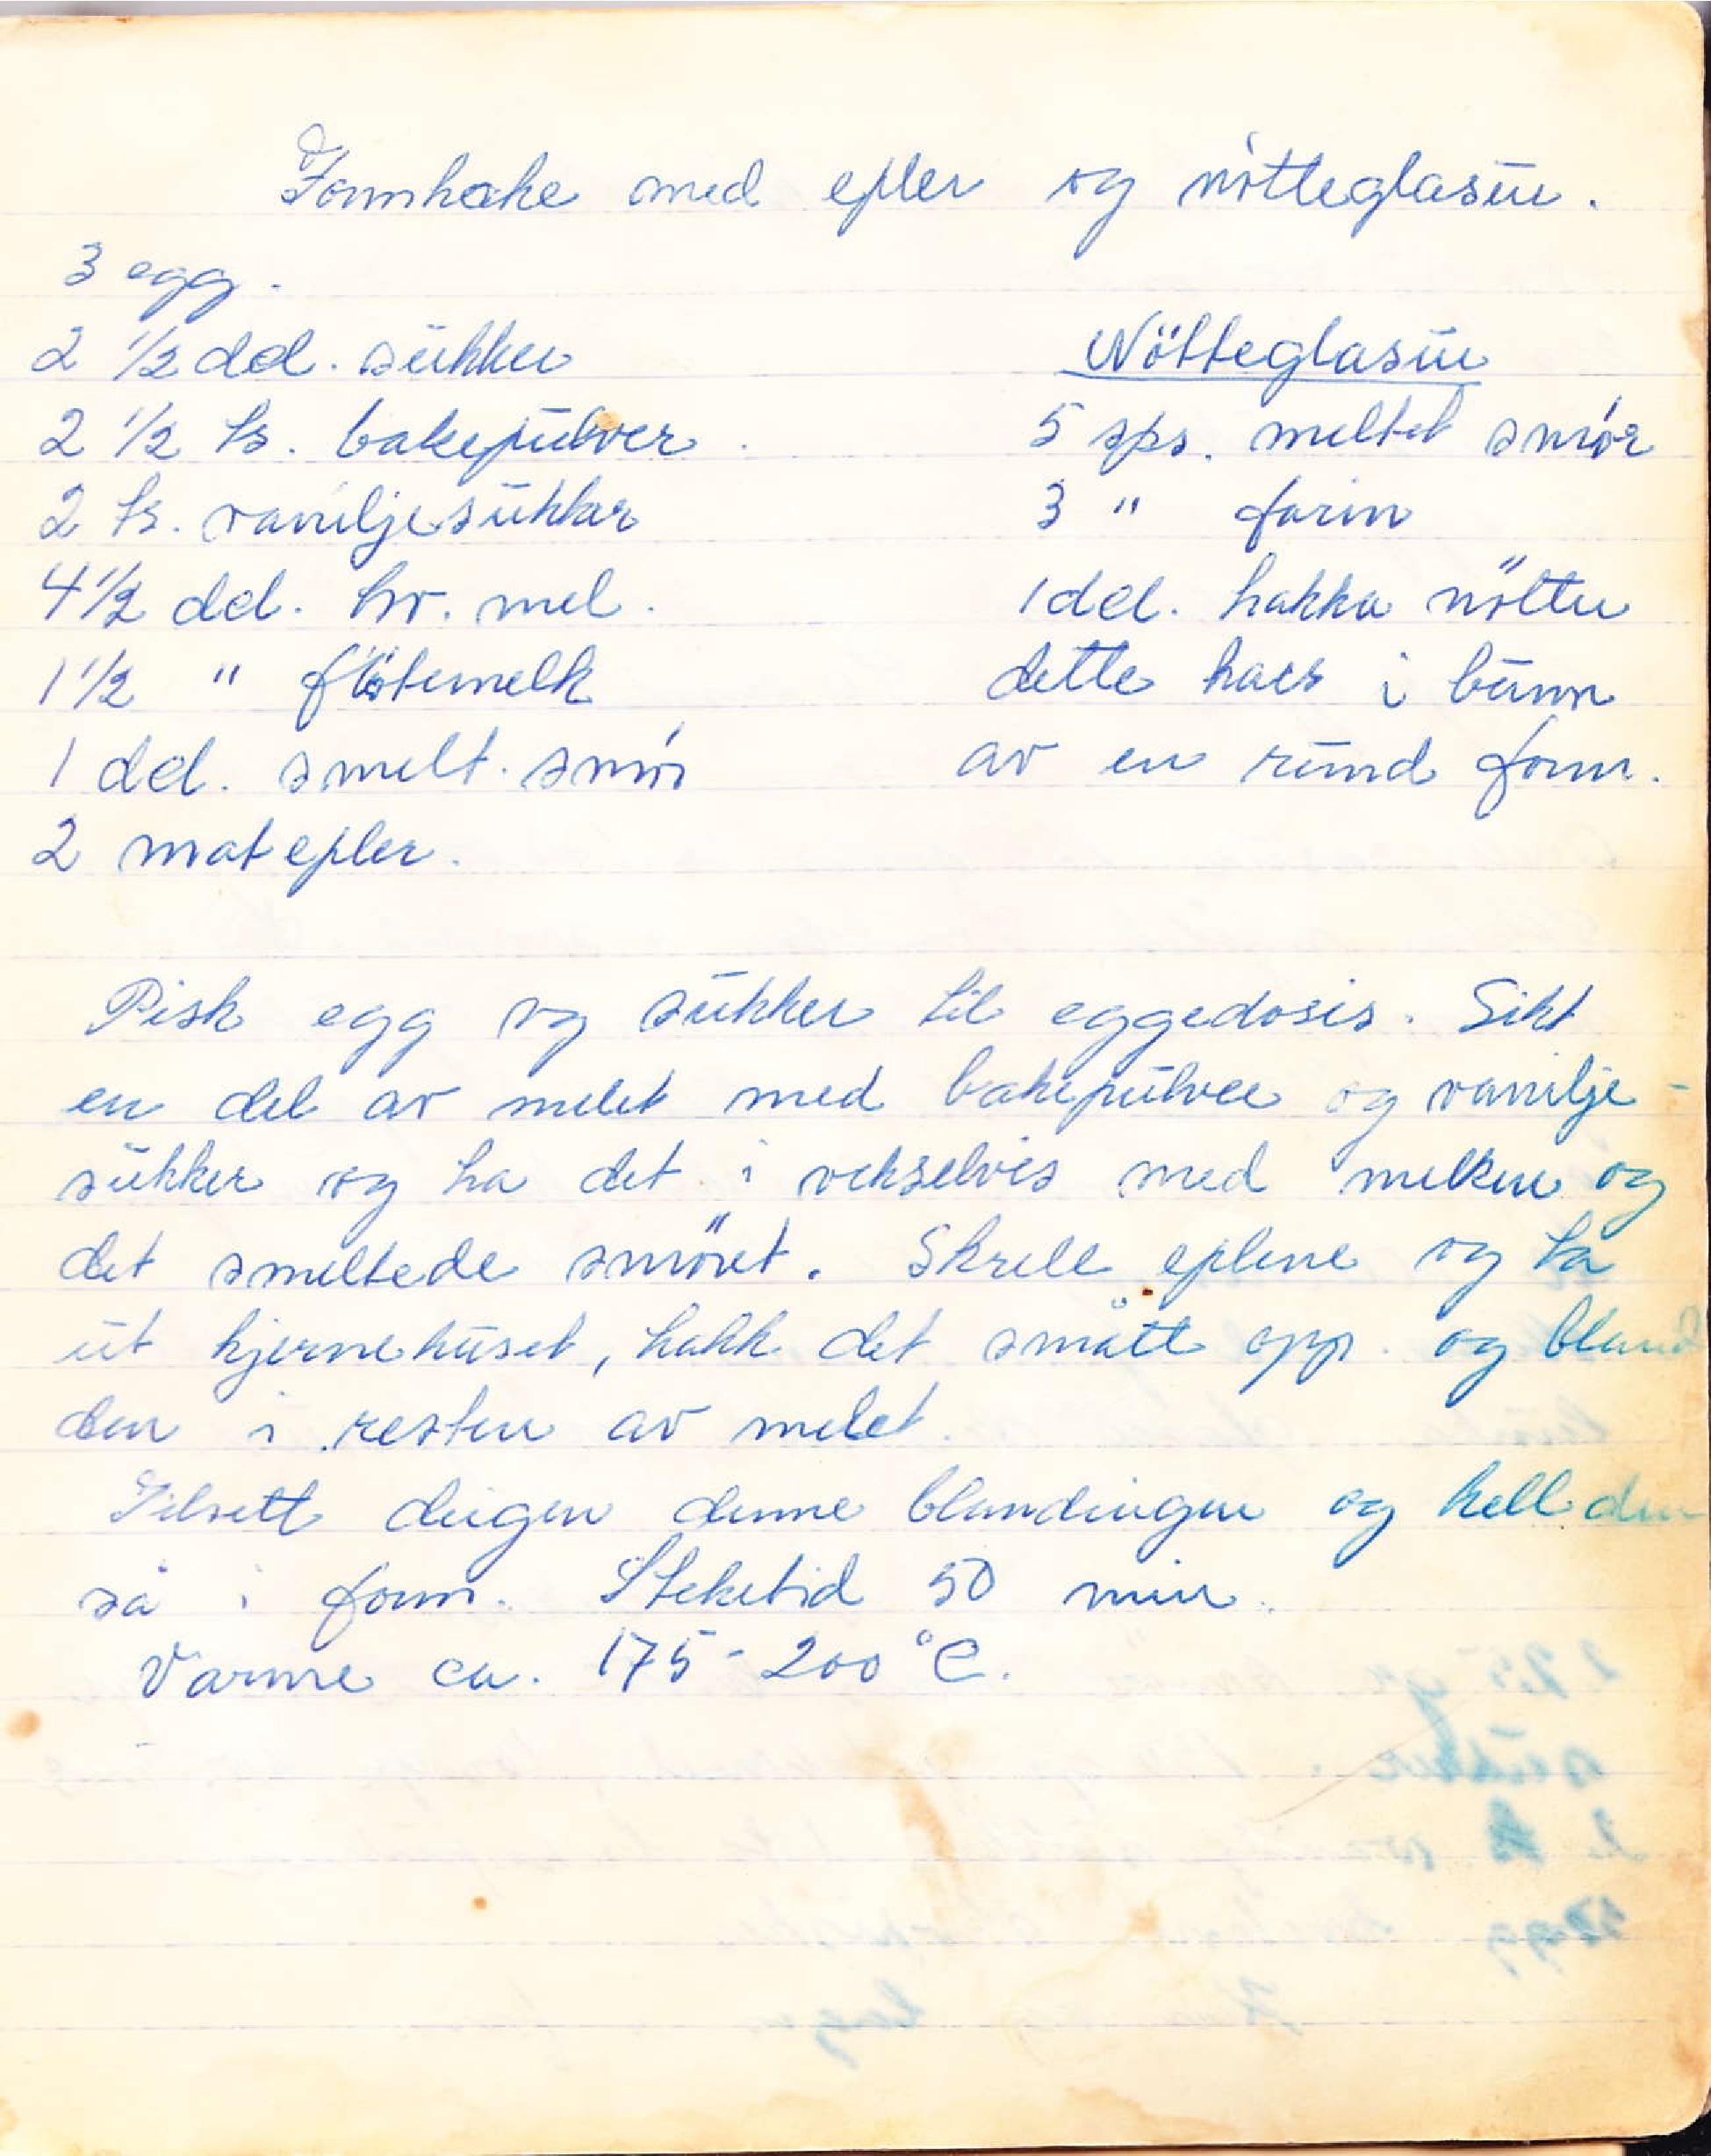 Formkake med epler og nötteglasur.
3 egg.
2 1/2 dcl. sukker
2 1/2 ts. bakepulver.
2 ts. vaniljesukker
4 1/2 dcl. hv. mel.
1 1/2 " flötemelk
1 dcl. smelt. smör
2 matepler.
Nötteglasur
5 sps. meltet smör
3 " farin
1 dcl. hakka nötter
dette haes i bunn
av en rund form.
Pisk egg og sukker til eggedosis. Sikt
en del av melet med bakepulver og vanilje-
sukker og ha det i vekselvis med melken og
det smeltede smöret. Skrell eplene og ta
ut kjernehuset, hakk det smått opp. og bland
den i resten av melet.
Tilsett deigen denne blandingen og hell den
så i form. Steketid 50 min.
Varme ca. 175 - 200°C.